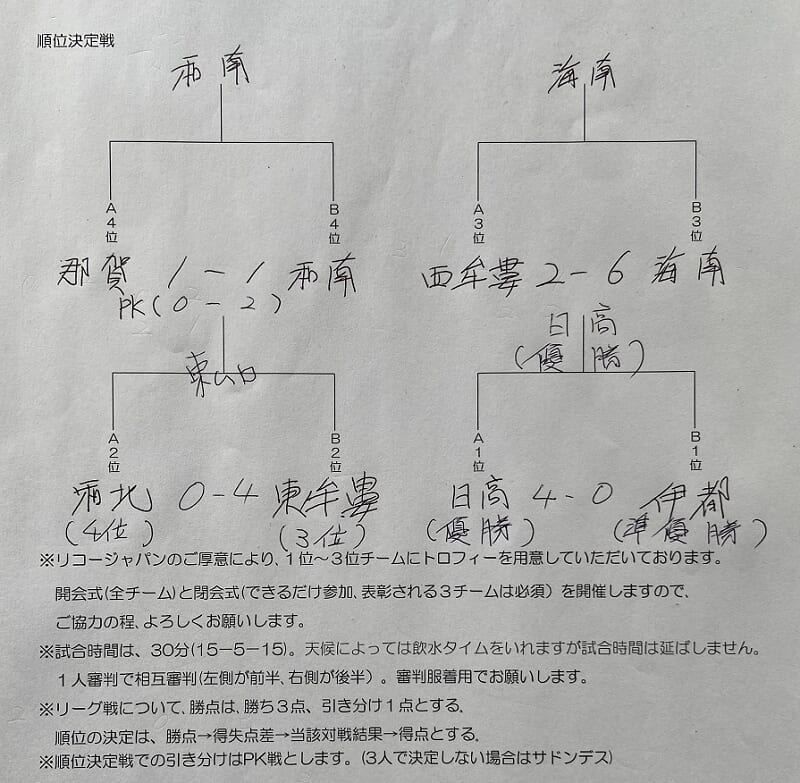 順位決定戦
和南 海南
A4位 B4位 A3位 B3位
那賀 1-1 和南 西牟婁 2-6 海南
PK(0-2)
日高
(優勝)
東
A2位 B2位 A1位 B1位
和北 0-4 東牟婁 日高 4-0 伊都
(4位) (3位) (優勝) (準優勝)
※リコージャパンのご厚意により、1位～3位チームにトロフィーを用意していただいております。
開会式(全チーム)と閉会式(できるだけ参加、表彰される3チームは必須）を開催しますので、
ご協力の程、よろしくお願いします。
※試合時間は、30分(15－5－15)。天候によっては飲水タイムをいれますが試合時間は延ばしません。
1人審判で相互審判(左側が前半、右側が後半）。審判服着用でお願いします。
※リーグ戦について、勝点は、勝ち3点、引き分け1点とする。
順位の決定は、勝点→得失点差→当該対戦結果→得点とする。
※順位決定戦での引き分けはPK戦とします。(3人で決定しない場合はサドンデス)